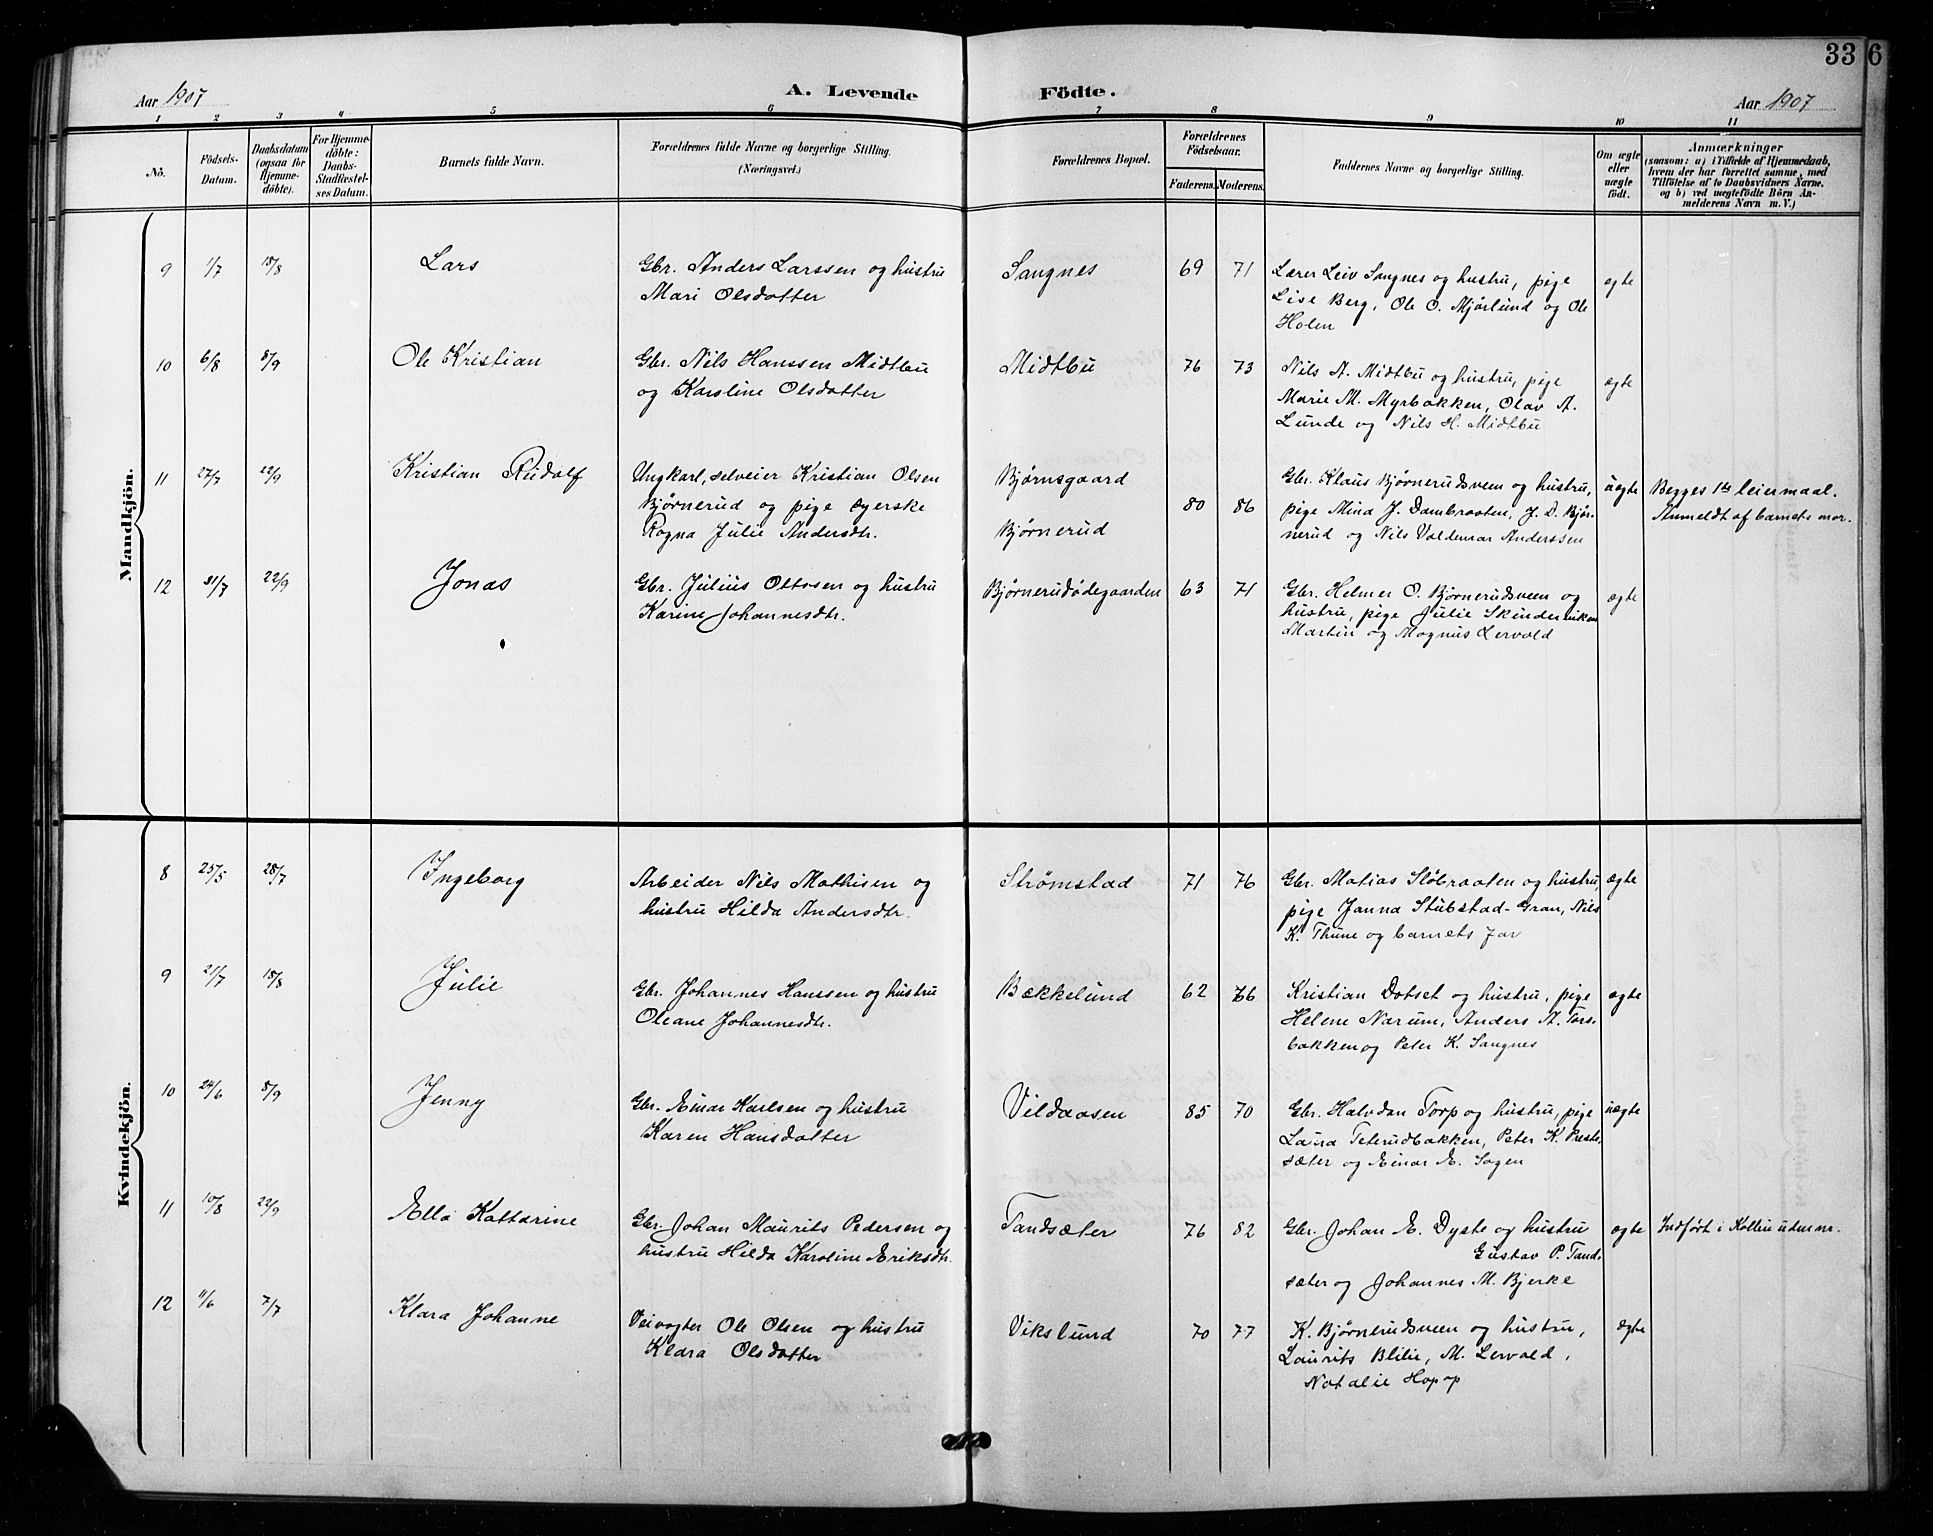 33 6
Aar 1907 A. Levende Födte. Aar 1907
1 2 3 4 5 6 7 8 9 10 11
No. Födsels-Datum. Daabsdatum (ogsaa för Hjemmedöbte). For Hjemmedöbte: Daabs-Stadfæstelses Datum. Barnets fulde Navn. Forældrenes fulde Navne og borgerlige Stilling. (Næringsvei.) Forældrenes Bopæl. Forældrenes Födselsaar. Faderens. Moderens. Faddernes Navne og borgerlige Stilling. Om ægte eller uægte födt. Anmærkninger (saasom: a) i Tilfælde af Hjemmedaab, hvem der har forrettet samme, med Tilföielse af to Daabsvidners Navne, og b) ved uægtefödte Börn Anmelderens Navn m. V.)
Mandkjön.
9 1/7 18/8 Lars Gbr. Anders Larssen og hustru Sangnes 69 71 Lærer Leiv Sangnes og hustru, pige ægte
Mari Olsdatter Lise Berg, Ole O. Mjørlund og Ole
Holen
10 6/8 8/9 Ole Kristian Gbr. Nils Hanssen Midtbu Midtbu 76 73 Nils A. Midtbu og hustru, pige ægte
og Karoline Olsdatter Marie M. Myrbakken, Olav A.
Lunde og Nils H. Midtbu
11 27/7 22/9 Kristian Rudolf Ungkarl, selveier Kristian Olsen Bjørnsgaard Gbr. Klaus Bjørnerudsveen og hustru, uægte Begges 1ste leiermaal.
Bjørnerud og pige syerske 80 86 pige Mina J. Dambraaten, J. D. Bjør- Anmeldt af barnets mor.
Ragna Julie Andersdtr. Bjørnerud nerud og Nils Valdemar Anderssen
12 31/7 22/9 Jonas Gbr. Julius Ottosen og hustru Bjørnerudødegaarden 63 71 Gbr. Helmer O. Bjørnerudsveen og ægte
Karine Johannesdtr. hustru, pige Julie Skinderviken
Martin og Magnus Lervold
Kvindekjön.
8 25/5 28/7 Ingeborg Arbeider Nils Mathisen og Strømstad 71 76 Gbr. Matias Sløbraaten og hustru ægte
hustru Hilda Andersdtr. pige Janna Stubstad-Gran, Nils
K. Thune og barnets far
9 21/7 18/8 Julie Gbr. Johannes Hanssen og hustru Bækkelund 62 66 Kristian Dotset og hustru, pige ægte
Oleane Johannesdtr. Helene Narum, Anders A. Tors-
bakken og Peter K. Sangnes
10 24/6 8/9 Jenny Gbr. Einar Karlsen og hustru Vildaasen 85 70 Gbr. Halvdan Torp og hustru, pige uægte
Karen Hansdatter Laura Teterudbakken, Peter K. Prest-
sæter og Einar E. Sogen
11 10/8 22/9 Ella Kattarine Gbr. Johan Maurits Pedersen og Tandsæter 76 82 Gbr. Johan E. Dyste og hustru ægte Indført i Kolbu utenr.
hustru Hilda Karoline Eriksdtr. Gustav P. Tand-
sæter og Johannes M. Bjerke
12 11/6 7/7 Klara Johanne Veivogter Ole Olsen og hustru Vikslund 70 77 K. Bjørnerudsveen og hustru, ægte
Klara Olsdatter Laurits Blilie, M. Lervold,
Natalie Hopp